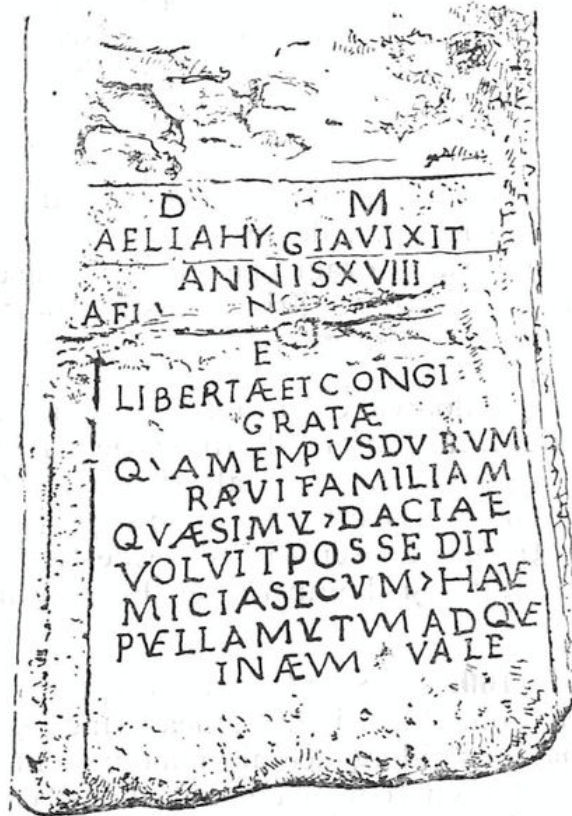 D M
AELIAHYGIAVIXIT
ANNISXVIII
AFI N
E
LIBERTÆETCONGI
GRATÆ
QVAMEMPVSDVRVM
RAPVIFAMILIAM
QVÆSIMVL›DACIAE
VOLVITPOSSEDIT
MICIASECVM›HAVE
PVELLAMVLTVMADQVE
INÆVM VALE